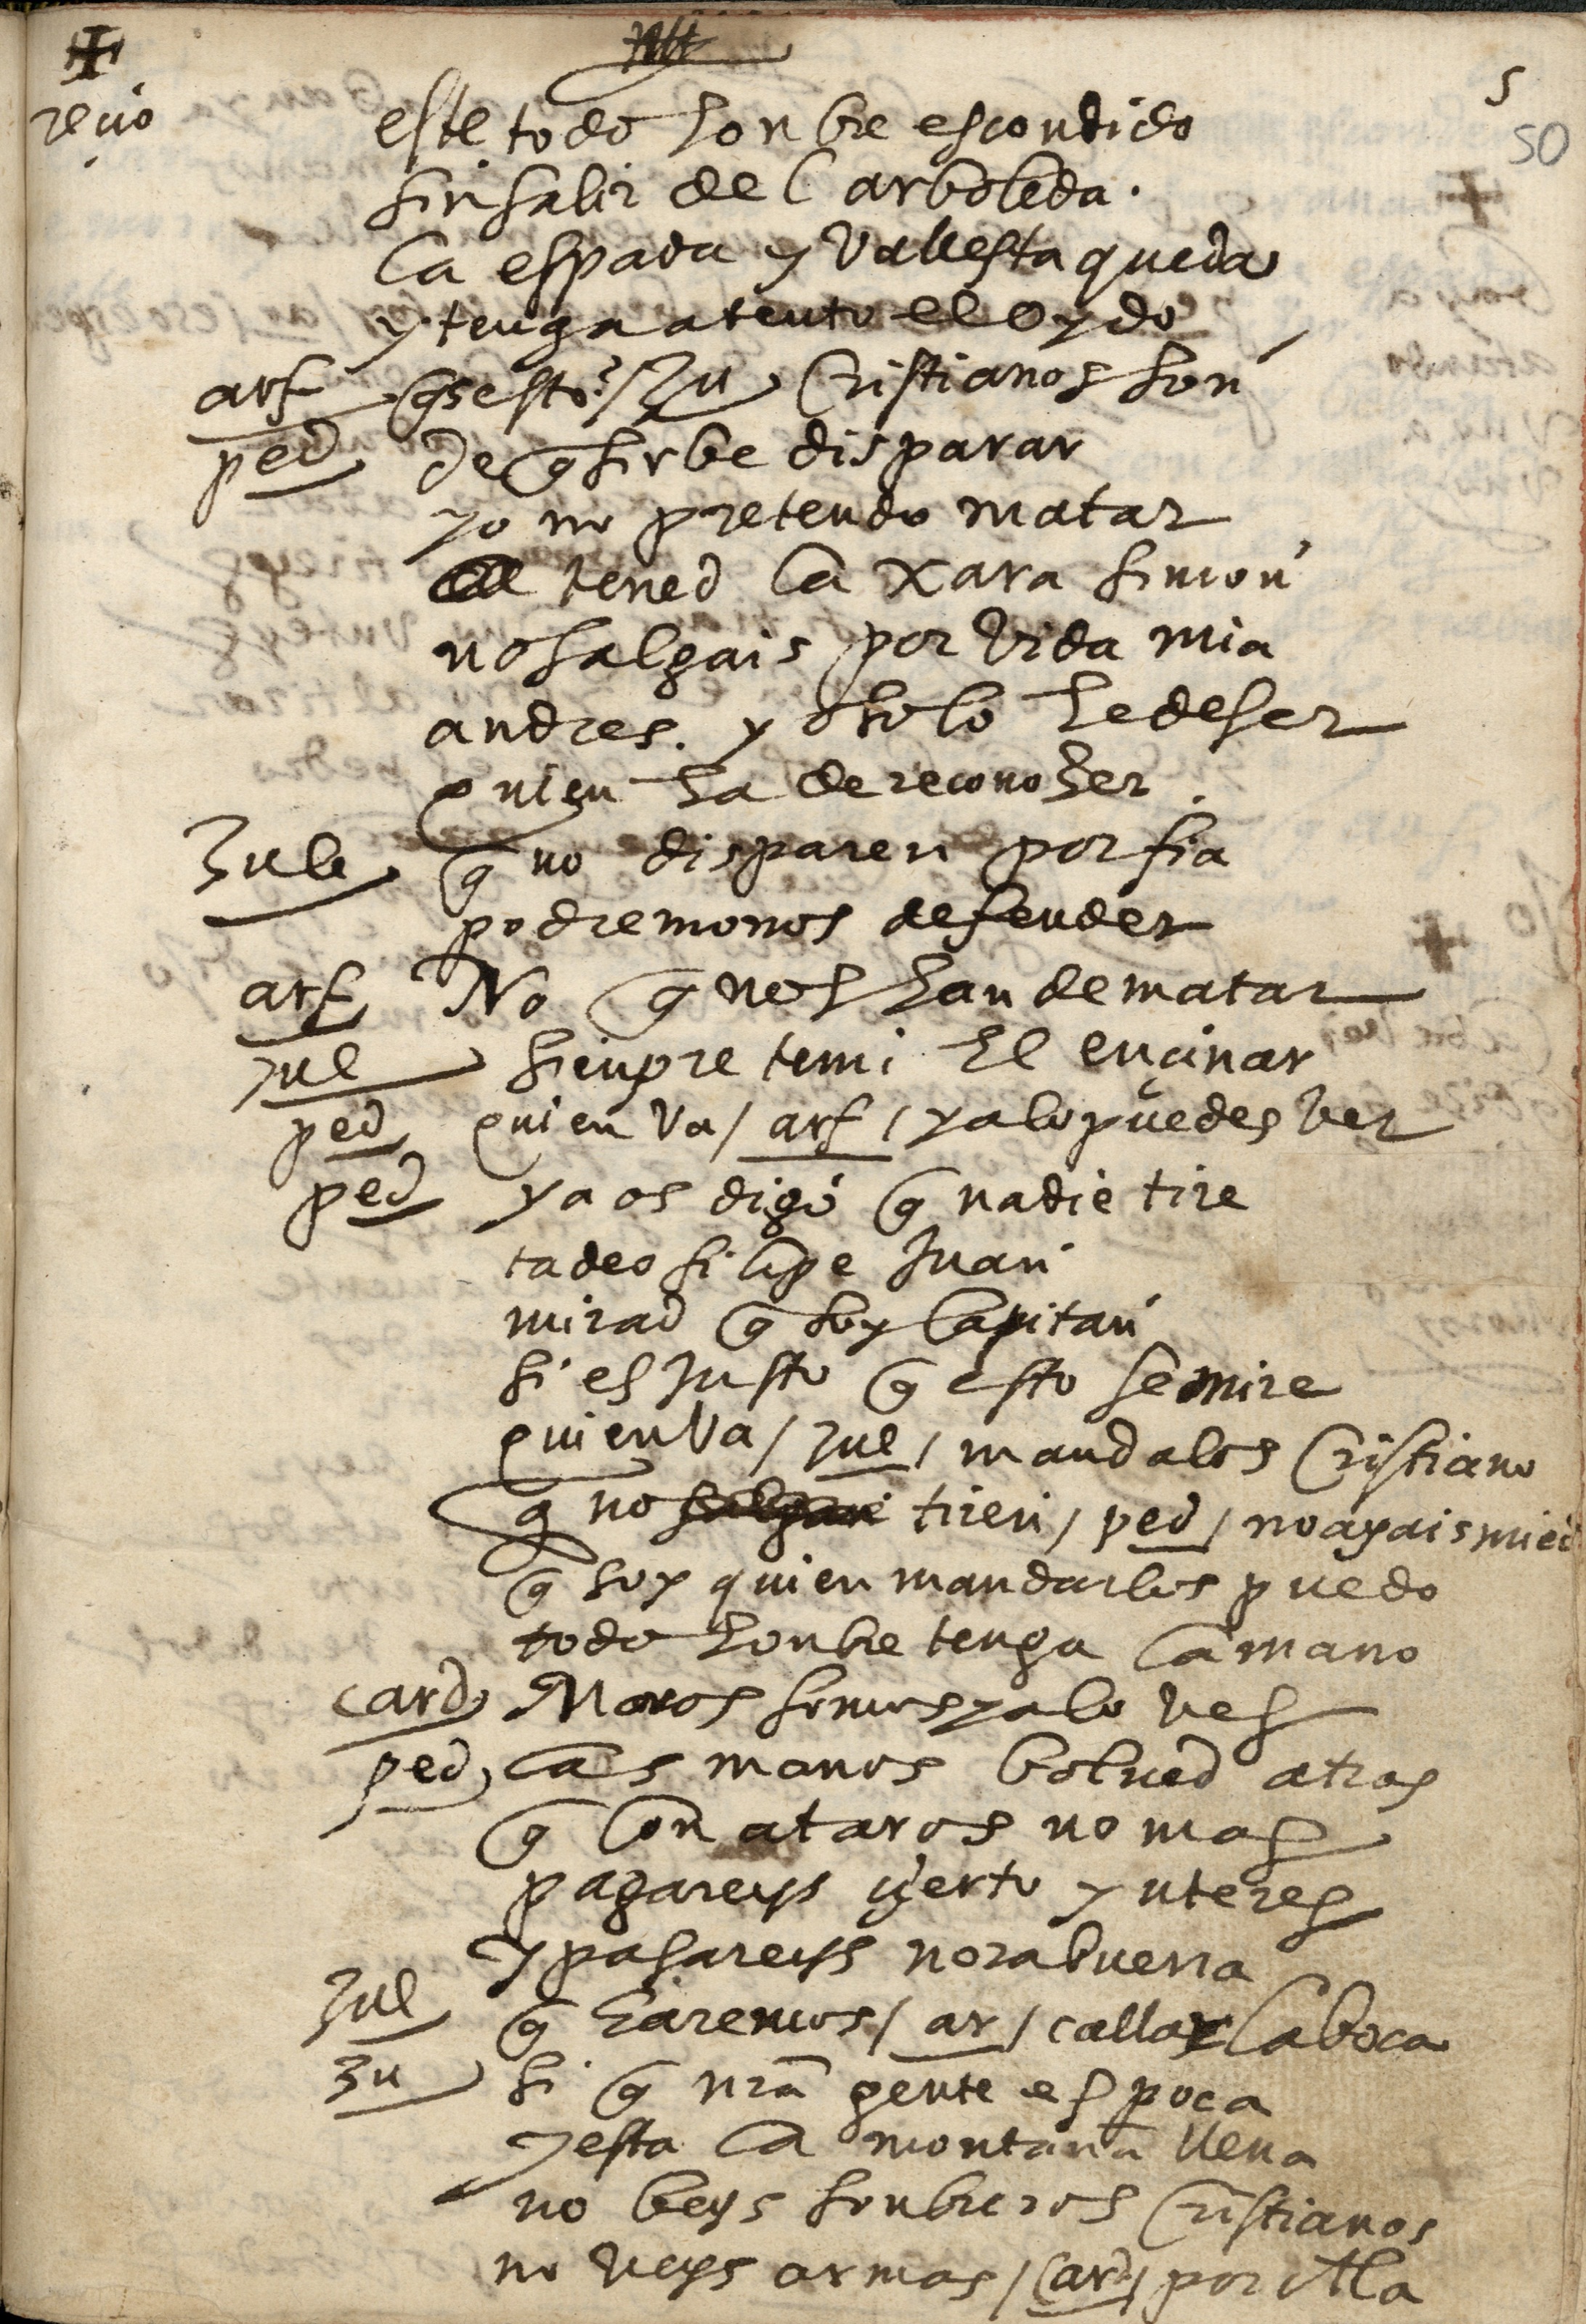 5
50
recio
este todo honbre escondido
sin salir del arboleda.
la espada y vallesta queda
y tenga atento el oydo
arf qs esto? / Zu Cristianos son
ped de q sirbe disparar
yo no pretendo matar
tened la xara simon
no salgais por vida mia
andres. yo solo he de ser
quien ha de reconozer.
Zule q no disparen porfia
podremonos defender
arf No q nos han de matar
zul sienpre temi El ençinar
ped quien va / arf / ya lo puedes ver
ped ya os digo q nadie tire
tadeo filipe Juan
mirad q soy Capitan
si es Justo q esto se mire
quien va / zul / mandalos Cristiano
q no salgan tiren / ped / no ayais mied
q soy quien mandarlos puedo
todo honbre tenga la mano
card Moros somos ya lo ves
ped las manos bolued atras
q Con ataros no mas
pagareys çierto ynteres
y pasareys norabuena
zul q haremos / ar / callar la boca
zu si q nra gente es poca
y esta la montaña llena
no beys sonbreros Cristianos
no veys armas / Card / por Ala